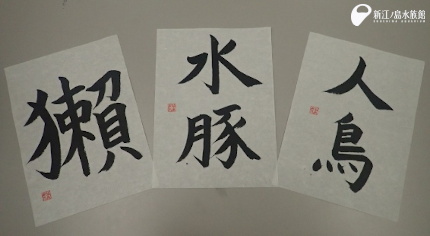 獺
水
豚
人
鳥
新江ノ島水族館
ENOSHIMA AQUARIUM